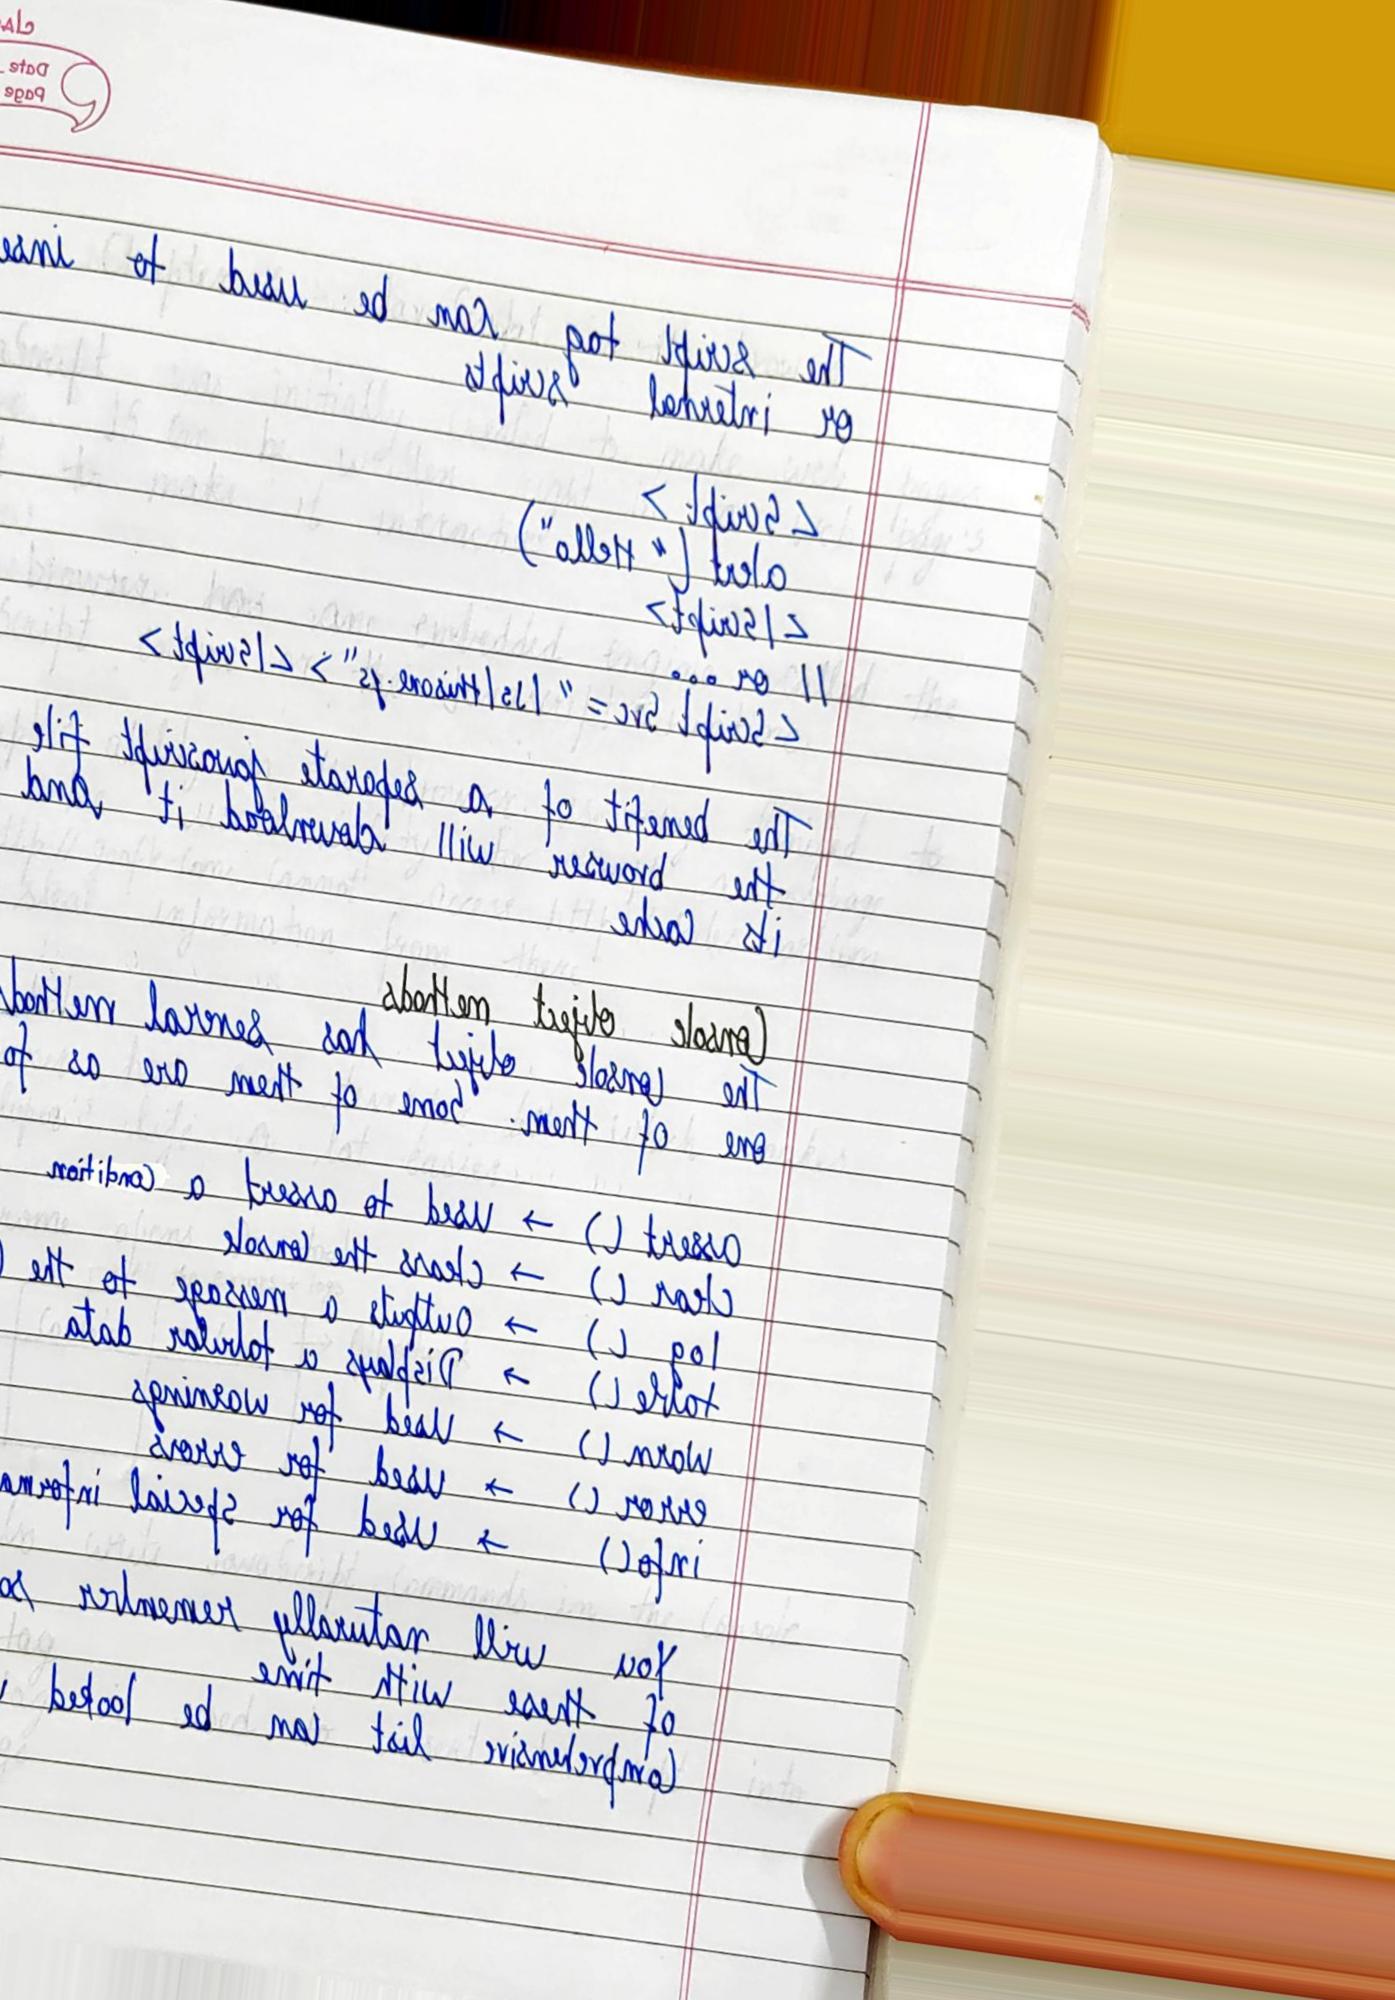 Date
Page
The script tag can be used to
or internal scripts
<Script>
alert ("Hello")
</Script>
// or ...
<Script Src = "/Js/thisone.js"> </Script>
The benefit of a separate javascript file
the browser will download it and
its Cache
Console object methods
The Console object has several methods
one of them. Some of them are as
assert () → Used to assert a Condition
clear () → Clears the Console
log () → Outputs a message to the
table () → Displays a tabular data
warn () → Used for warnings
error () → used for errors
info() → Used for special
You will naturally remember
of these with time
Comprehensive list can be looked